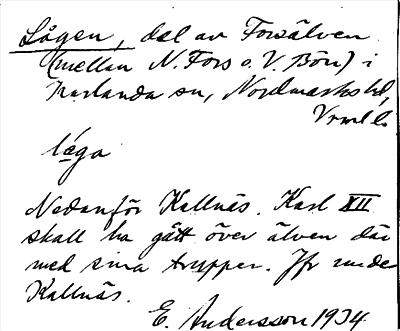 Lågen, del av Forsälven
(mellan N. Fors o. V. Bön) i
Karlanda sn, Nordmarks hd,
Vrml l.
låga
Nedanför Kallnäs. Karl XII
skall ha gått över älven där
med sina trupper. Jfr under
Kallnäs.
E. Andersson 1934